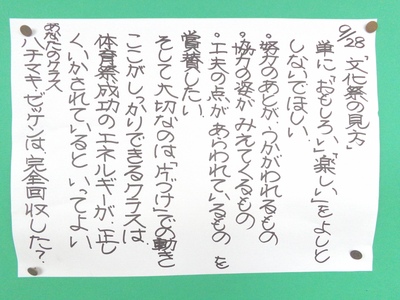 9/28「文化祭の見方」
単に「おもしろい」「楽しい」をよしと
しないでほしい。
・努力のあとが、うかがわれるもの
・協力の姿が みえてくるもの
・工夫の点が あらわれているもの を
賞賛したい。
そして大切なのは「片づけ」での動き
ここがしっかりできるクラスは、
体育祭成功のエネルギーが、正し
くいかされていると いってよい
あなたのクラス
ハチマキ・ゼッケンは、完全回収した?